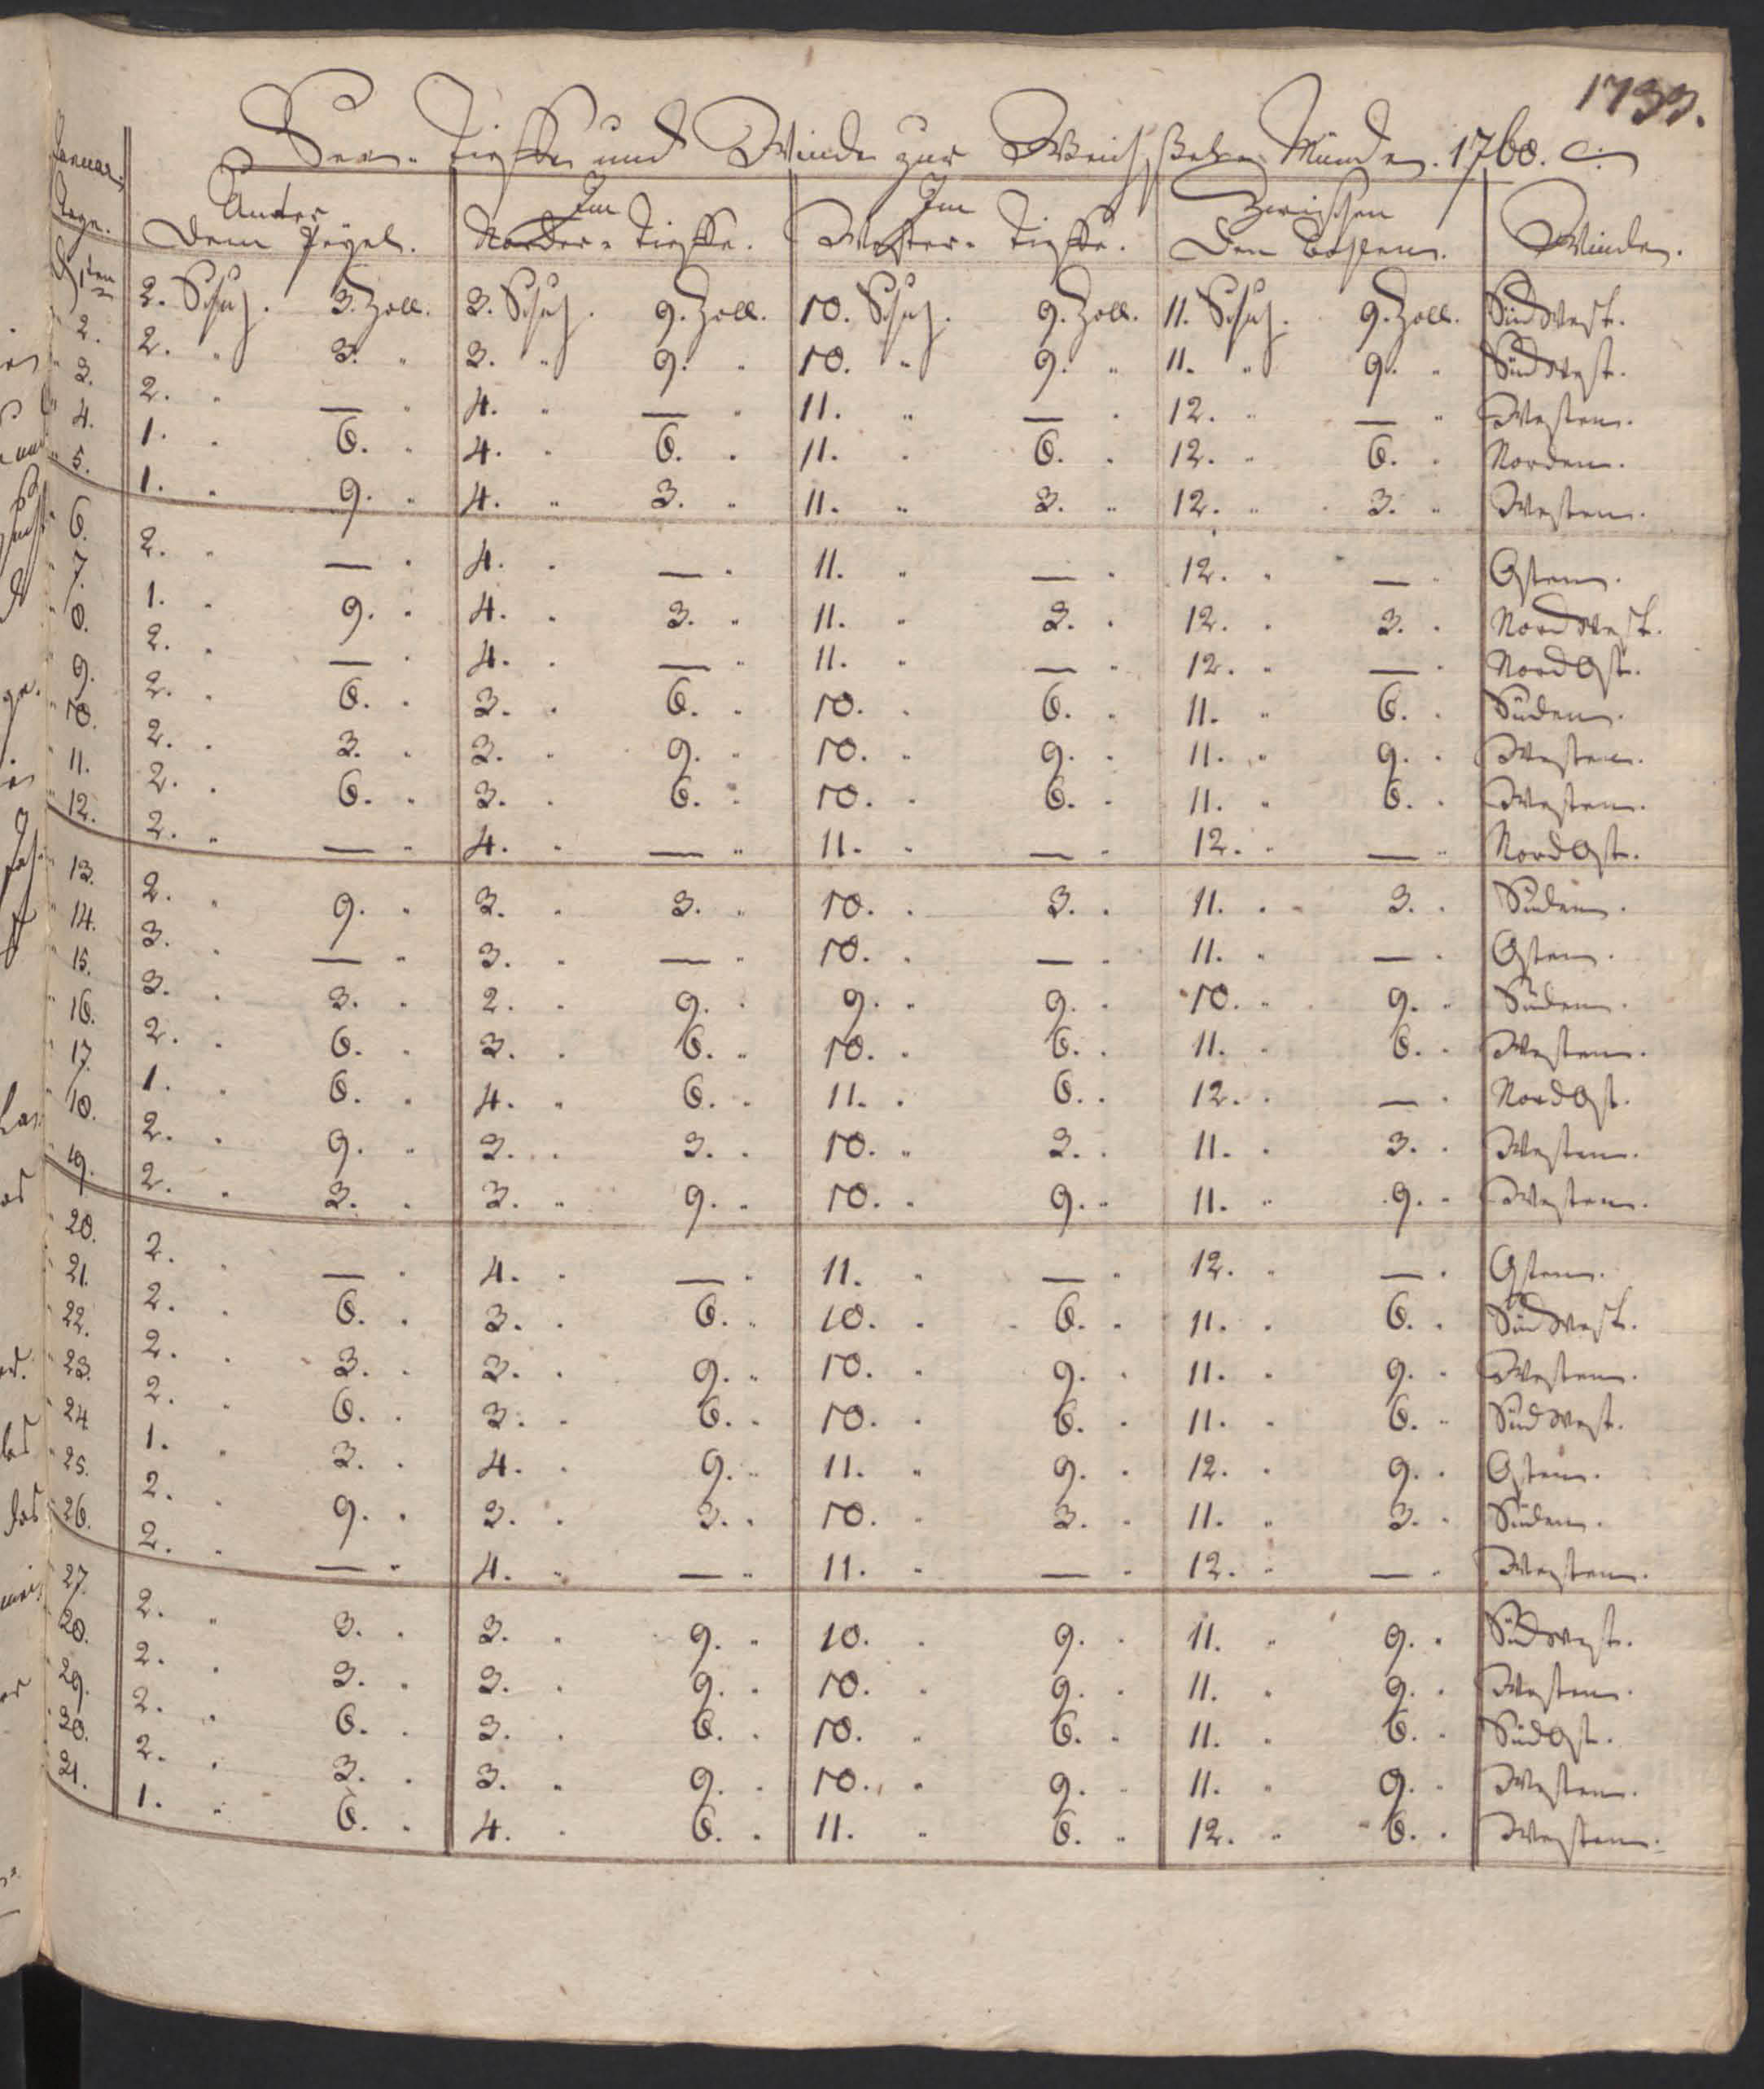 1733.
See- Tieffe und Winde zur Weichßel-Münde. 1760.
Januar: Tage. Unter dem Pegel. Im Norder-Tieffe. Im Wester-Tieffe. Zwischen den Bospem. Winde.
d 1ten 2. Schuh. 3. Zoll. 3. Schuh. 9. Zoll. 10. Schuh. 9. Zoll. 11. Schuh. 9. Zoll. SüdWest.
" 2. 2. " 3. " 3. " 9. " 10. " 9. " 11. " 9. " SüdWest.
" 3. 2. " — " 4. " — " 11. " — " 12. " — " Westen.
" 4. 1. " 6. " 4. " 6. " 11. " 6. " 12. " 6. " Norden.
" 5. 1. " 9. " 4. " 3. " 11. " 3. " 12. " 3. " Westen.
" 6. 2. " — " 4. " — " 11. " — " 12. " — " Osten.
" 7. 1. " 9. " 4. " 3. " 11. " 3. " 12. " 3. " NordWest.
" 8. 2. " — " 4. " — " 11. " — " 12. " — " NordOst.
" 9. 2. " 6. " 3. " 6. " 10. " 6. " 11. " 6. " Süden.
" 10. 2. " 3. " 3. " 9. " 10. " 9. " 11. " 9. " Westen.
" 11. 2. " 6. " 3. " 6. " 10. " 6. " 11. " 6. " Westen.
" 12. 2. " — " 4. " — " 11. " — " 12. " — " NordOst.
" 13. 2. " 9. " 3. " 3. " 10. " 3. " 11. " 3. " Süden.
" 14. 3. " — " 3. " — " 10. " — " 11. " — " Osten.
" 15. 3. " 3. " 2. " 9. " 9. " 9. " 10. " 9. " Süden.
" 16. 2. " 6. " 3. " 6. " 10. " 6. " 11. " 6. " Westen.
" 17. 1. " 6. " 4. " 6. " 11. " 6. " 12. " — " NordOst.
" 18. 2. " 9. " 3. " 3. " 10. " 3. " 11. " 3. " Westen.
" 19. 2. " 3. " 3. " 9. " 10. " 9. " 11. " 9. " Westen.
" 20. 2. " — " 4. " — " 11. " — " 12. " — " Osten.
" 21. 2. " 6. " 3. " 6. " 10. " 6. " 11. " 6. " SüdWest.
" 22. 2. " 3. " 3. " 9. " 10. " 9. " 11. " 9. " Westen.
" 23. 2. " 6. " 3. " 6. " 10. " 6. " 11. " 6. " SüdWest.
" 24. 1. " 3. " 4. " 9. " 11. " 9. " 12. " 9. " Osten.
" 25. 2. " 9. " 3. " 3. " 10. " 3. " 11. " 3. " Süden.
" 26. 2. " — " 4. " — " 11. " — " 12. " — " Westen.
" 27. 2. " 3. " 3. " 9. " 10. " 9. " 11. " 9. " SüdWest.
" 28. 2. " 3. " 3. " 9. " 10. " 9. " 11. " 9. " Westen.
" 29. 2. " 6. " 3. " 6. " 10. " 6. " 11. " 6. " SüdOst.
" 30. 2. " 3. " 3. " 9. " 10. " 9. " 11. " 9. " Westen.
" 31. 1. " 6. " 4. " 6. " 11. " 6. " 12. " 6. " Westen.